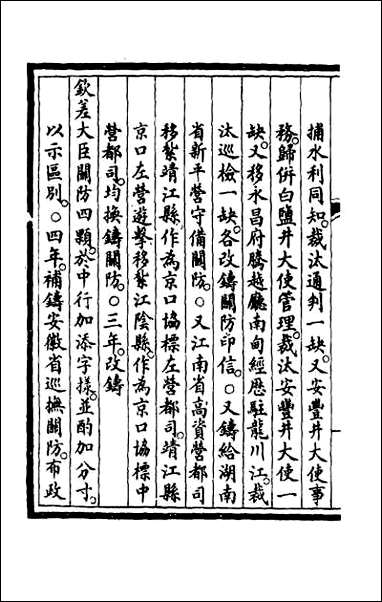 捕水利同知。裁汰通判一缺。又安豐井大使事
務。歸併白鹽井大使管理。裁汰安豐井大使一
缺。又移永昌府騰越廳南甸經歷駐龍川江。裁
汰巡檢一缺。各改鑄關防印信。○又鑄給湖南
省新平營守備關防。○又江南省高資營都司
移紮靖江縣作為京口協標左營都司。靖江縣
京口左營遊擊移紮江陰縣。作為京口協標中
營都司。均換鑄關防。○三年。改鑄
欽差大臣關防四顆。於中行加添字樣。並酌加分寸。
以示區別。○四年。補鑄安徽省巡撫關防。布政